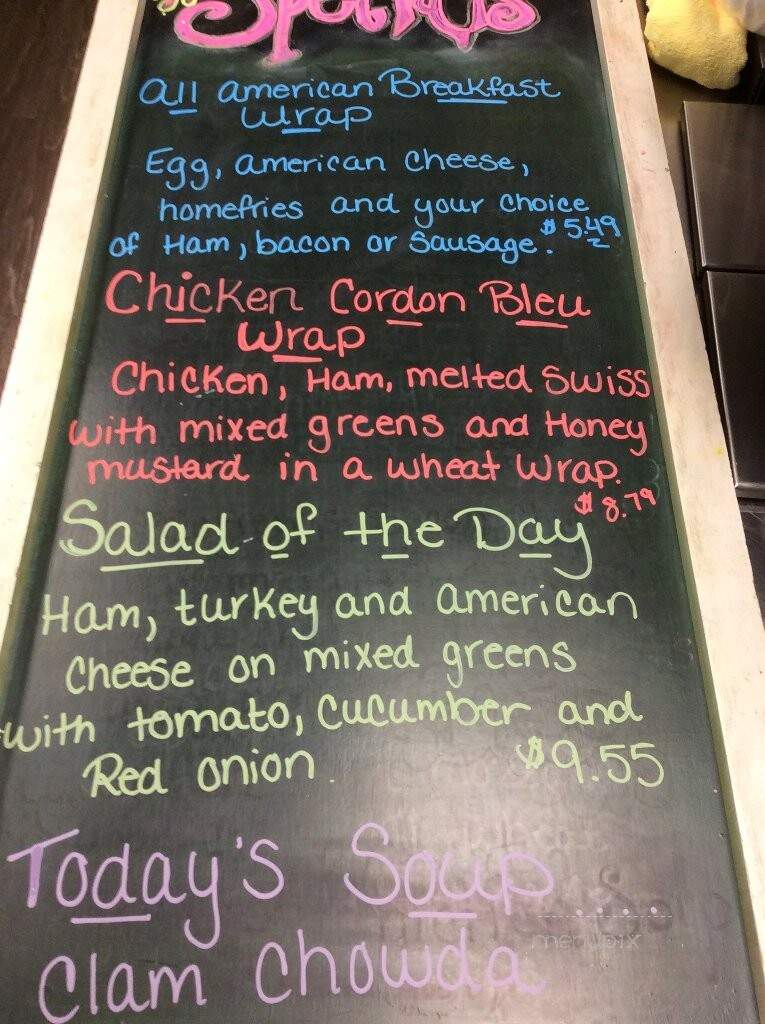 Specials
All American Breakfast
Wrap
Egg, american cheese,
homefries and your choice
of Ham, bacon or Sausage. $5.49
Chicken Cordon Bleu
Wrap
Chicken, Ham, melted Swiss
with mixed greens and Honey
mustard in a wheat Wrap.
$8.79
Salad of the Day
Ham, turkey and american
cheese on mixed greens
with tomato, cucumber and
Red onion. $9.55
Today's Soup
Clam Chowda
menupix